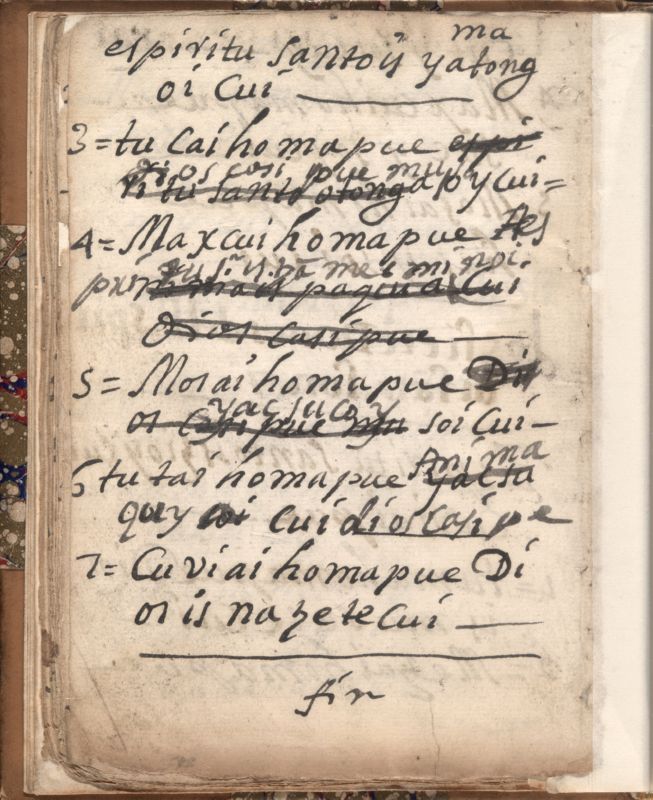 ma
espiritu santo is yatong
oi Cui
3 = tu Caihomapue espi
Dios casi pue mu
ritu santo otongapoycui =
4 = Maxcuihomapue
is pã mei minoi
Cui
Dios casi pue
5 = Mosaihomapue Di
yacsucoy
os casi pue mu soi Cui
6 tu tai homapue yacsu
Anima
quy soi cui dios casi pe
7 = Cuviaihomapue Di
os is nazete Cui
fin